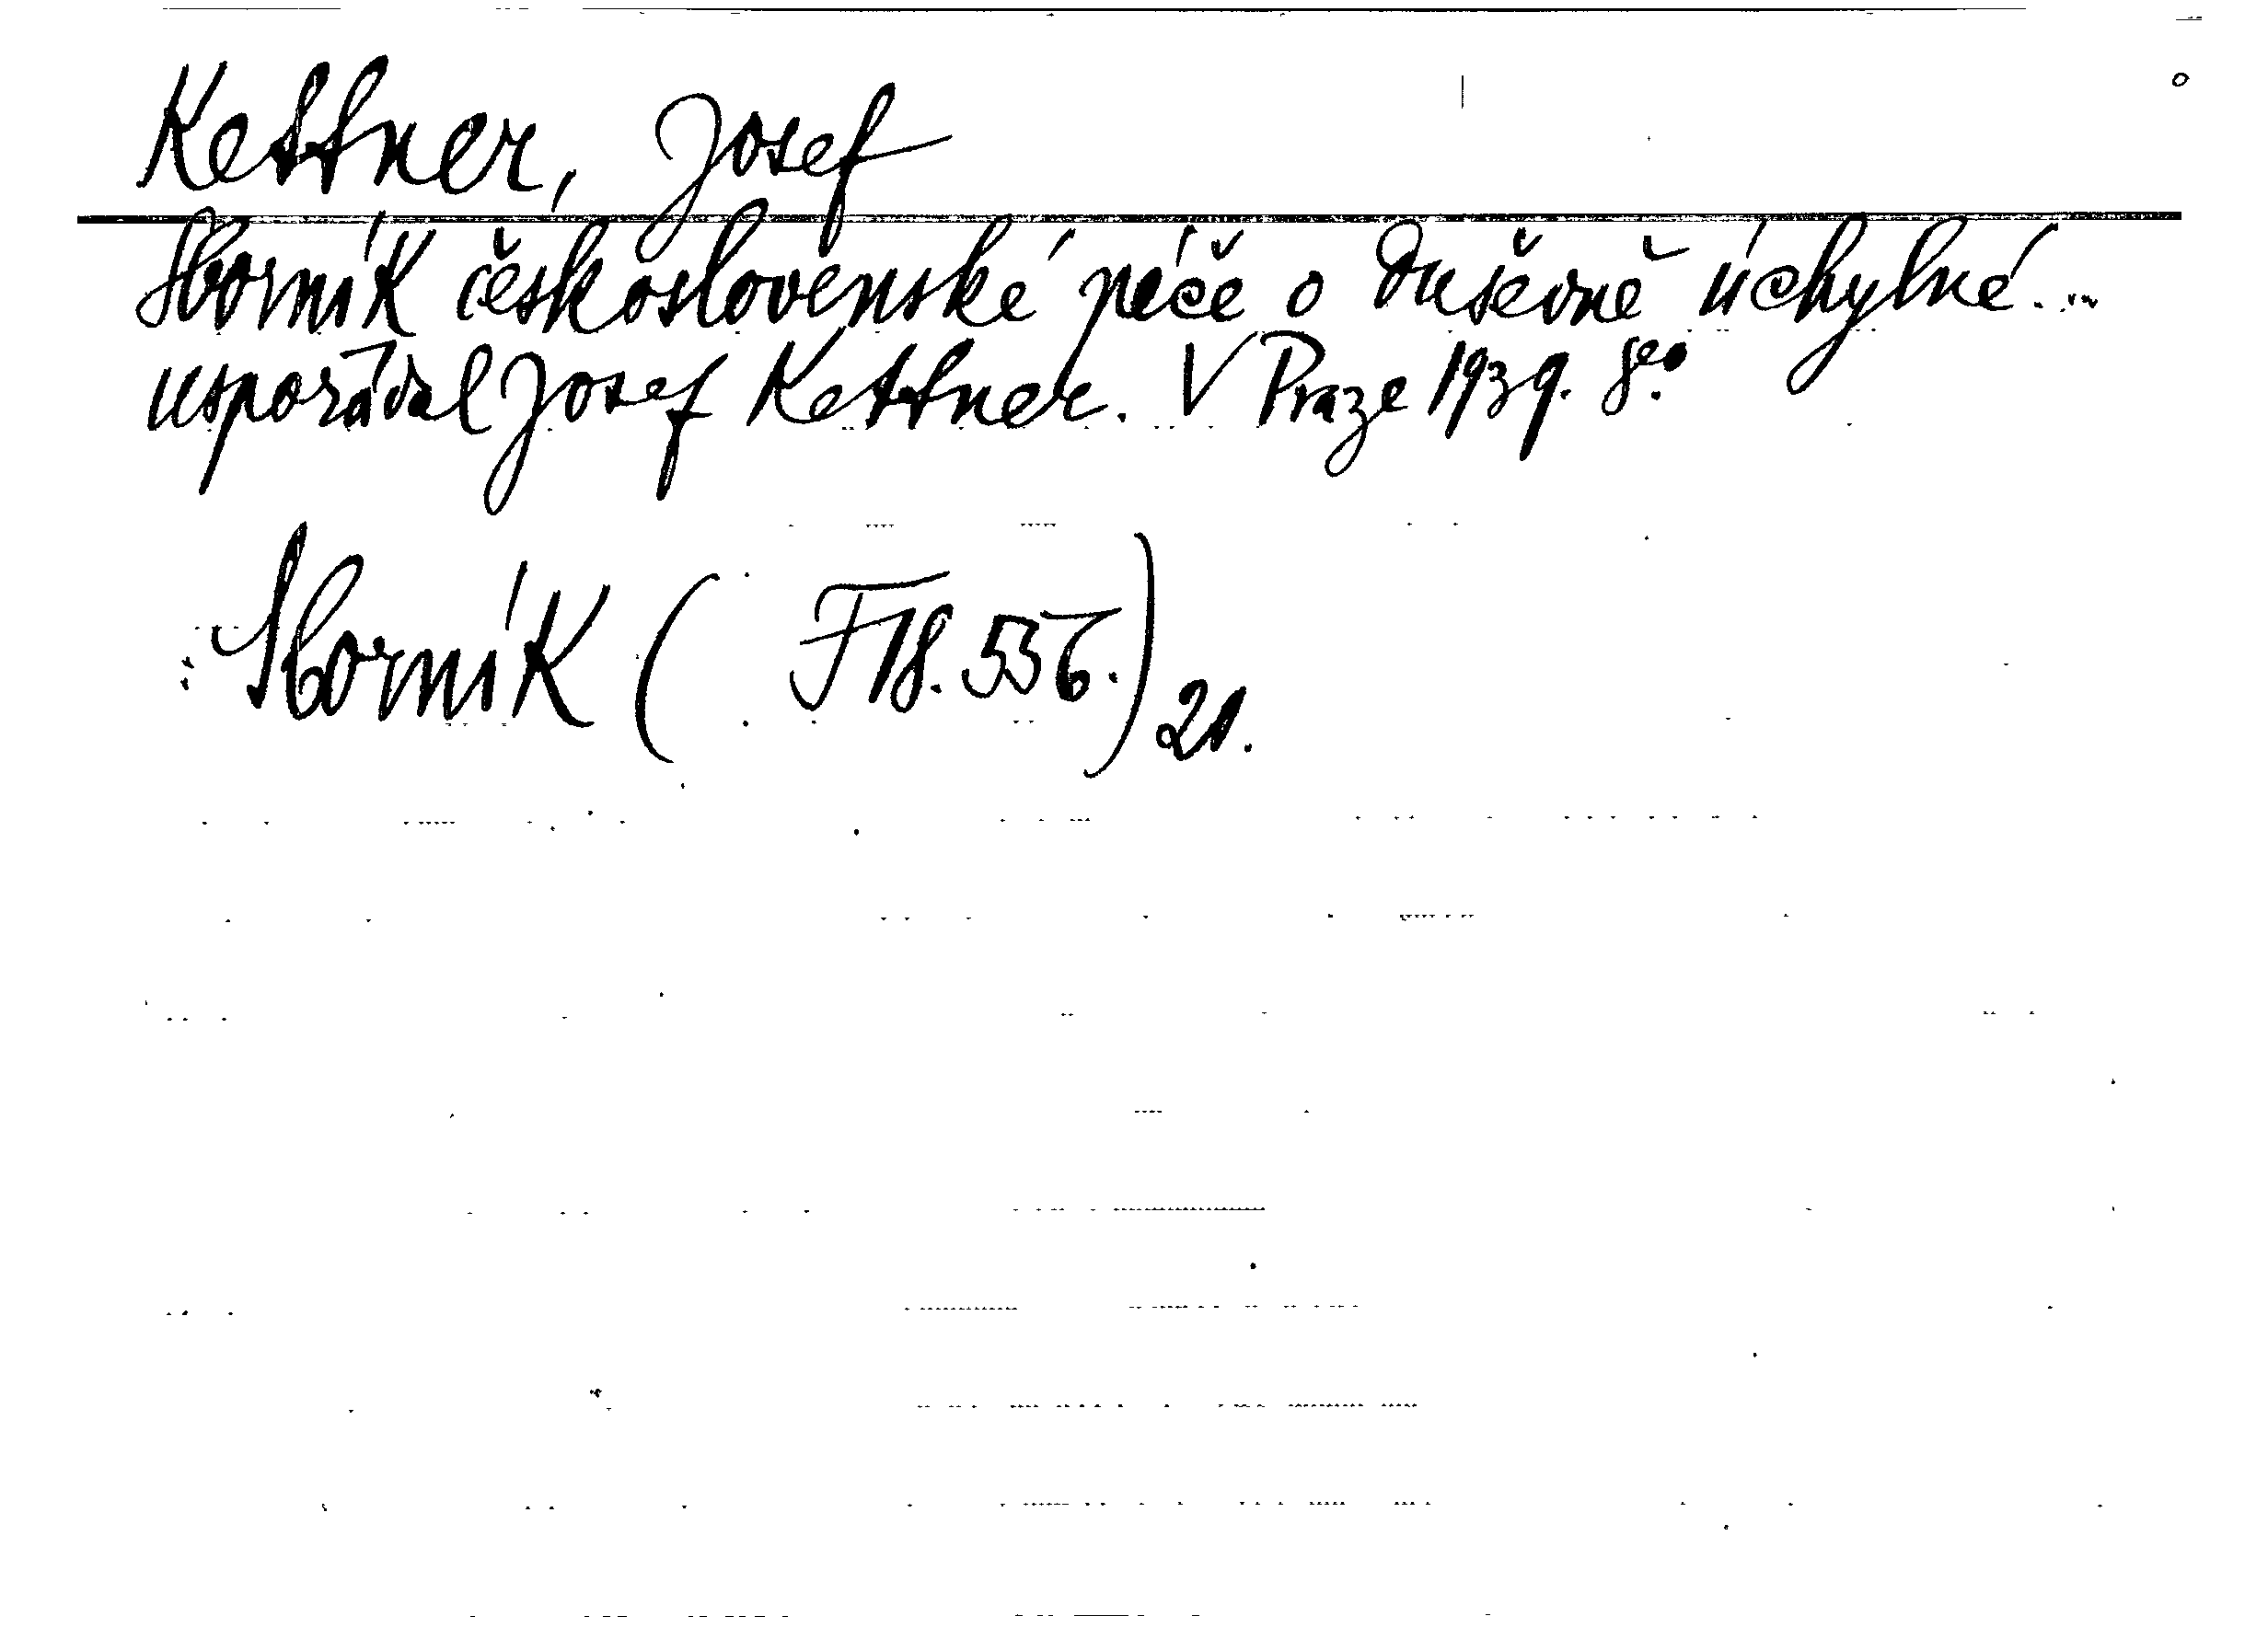 Kettner, Josef
Sborník československé péče o duševně úchylné...
uspořádal Josef Kettner. V Praze 1939. 8°.
Sborník ( F 18. 556.) 21.